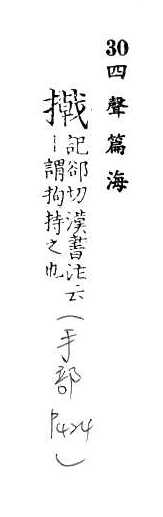 30四聲篇海
撠記郤切漢書注云
丨謂拘持之也
(手部P424)